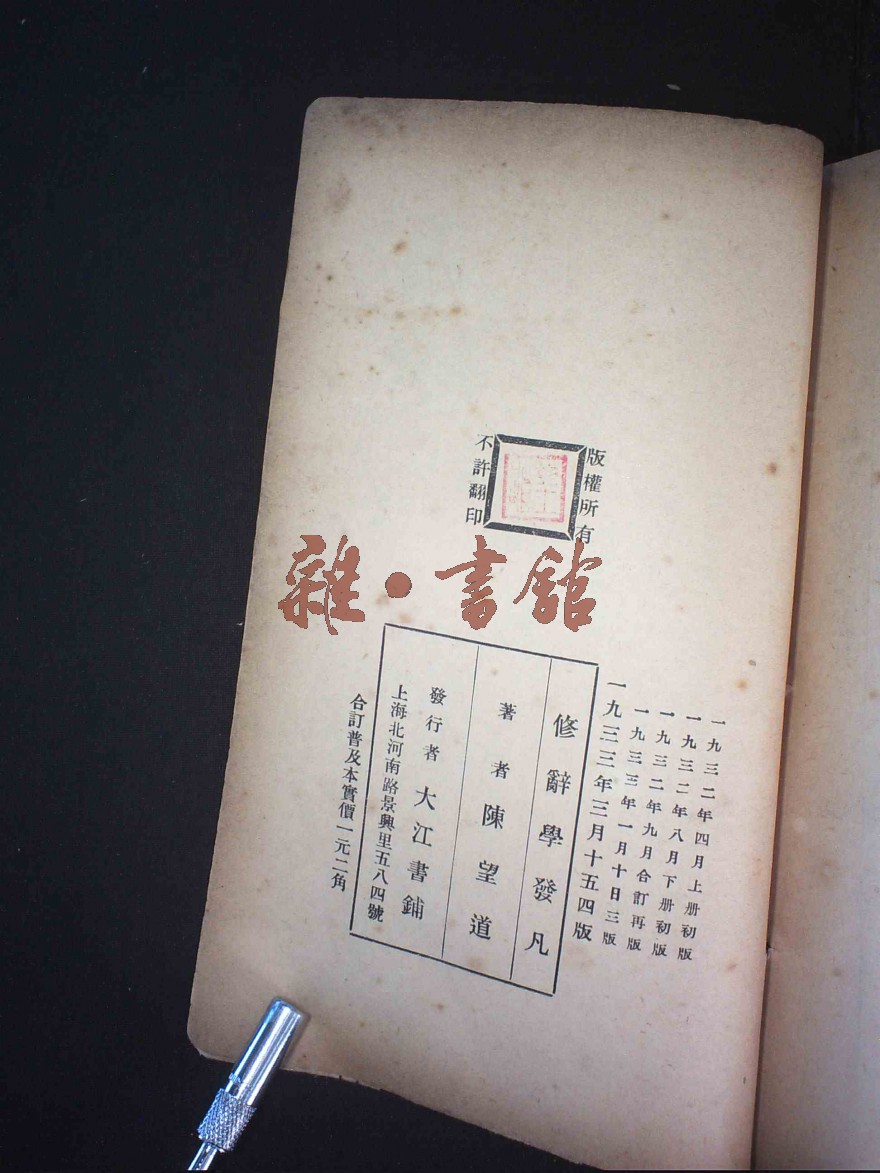 版權所有
不許翻印
雜·書舘
一九三二年四月上册初版
一九三二年八月下册初版
一九三二年九月合訂再版
一九三三年一月十日三版
一九三三年三月十五四版
修辭學發凡
著者 陳望道
發行者 大江書鋪
上海北河南路景興里五八四號
合訂普及本實價一元二角